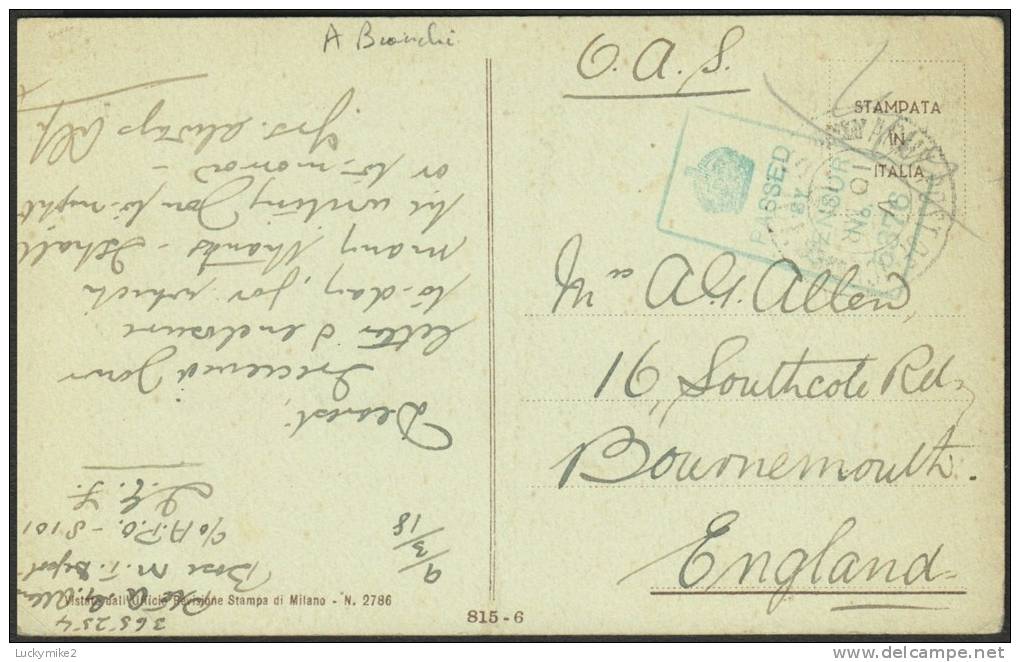 A Bianchi
O.A.S.
STAMPATA
IN
ITALIA
PASSED
BY
CENSOR
No.
Mrs A.G. Allen,
16, Southcote Rd,
Bournemouth.
England
365254
Pte A. G. Allen
Base M.T. Depot
c/o A.P.O. - S101
I.E.F.
9/3/18
Dearest,
I received your
letter & enclosure
to-day, for which
many thanks - I shall
be writing you to-night
or to-morrow -
Yrs. always Alf
Vistato dall'Ufficio Revisione Stampa di Milano - N. 2786
815-6
Luckymike2
www.delcampe.net